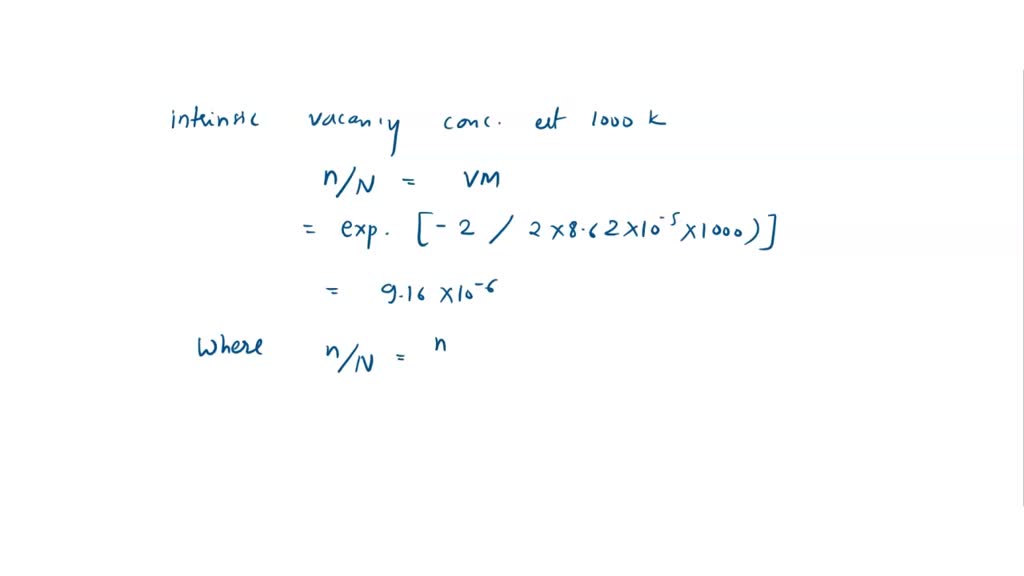 intrinsic vacancy conc. at 1000 K
n/N = VM
= exp. [-2 / 2×8.62×10⁻⁵×1000)]
= 9.16 ×10⁻⁶
Where n/N = n